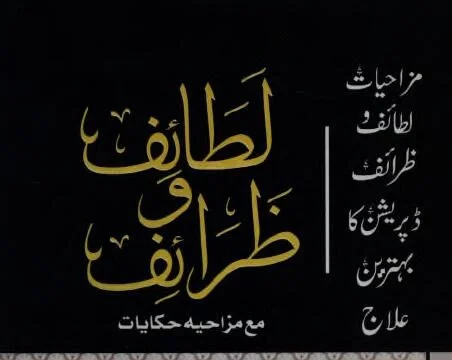 لَطَائِف
و
ظَرَائِف
مع مزاحیہ حکایات
مزاحیات
لطائف و
ظرائف
ڈپریشن کا
بہترین
علاج